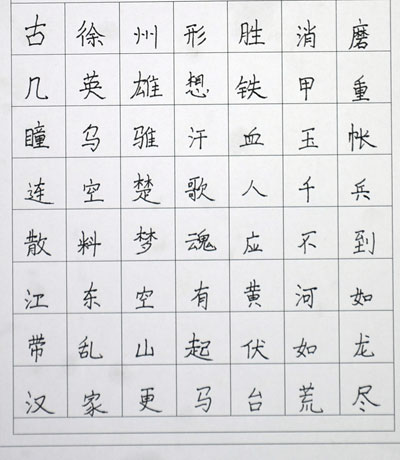 古徐州形胜消磨
几英雄想铁甲重
瞳乌骓汗血玉帐
连空楚歌人千兵
散料梦魂应不到
江东空有黄河如
带乱山起伏如龙
汉家更马台荒尽